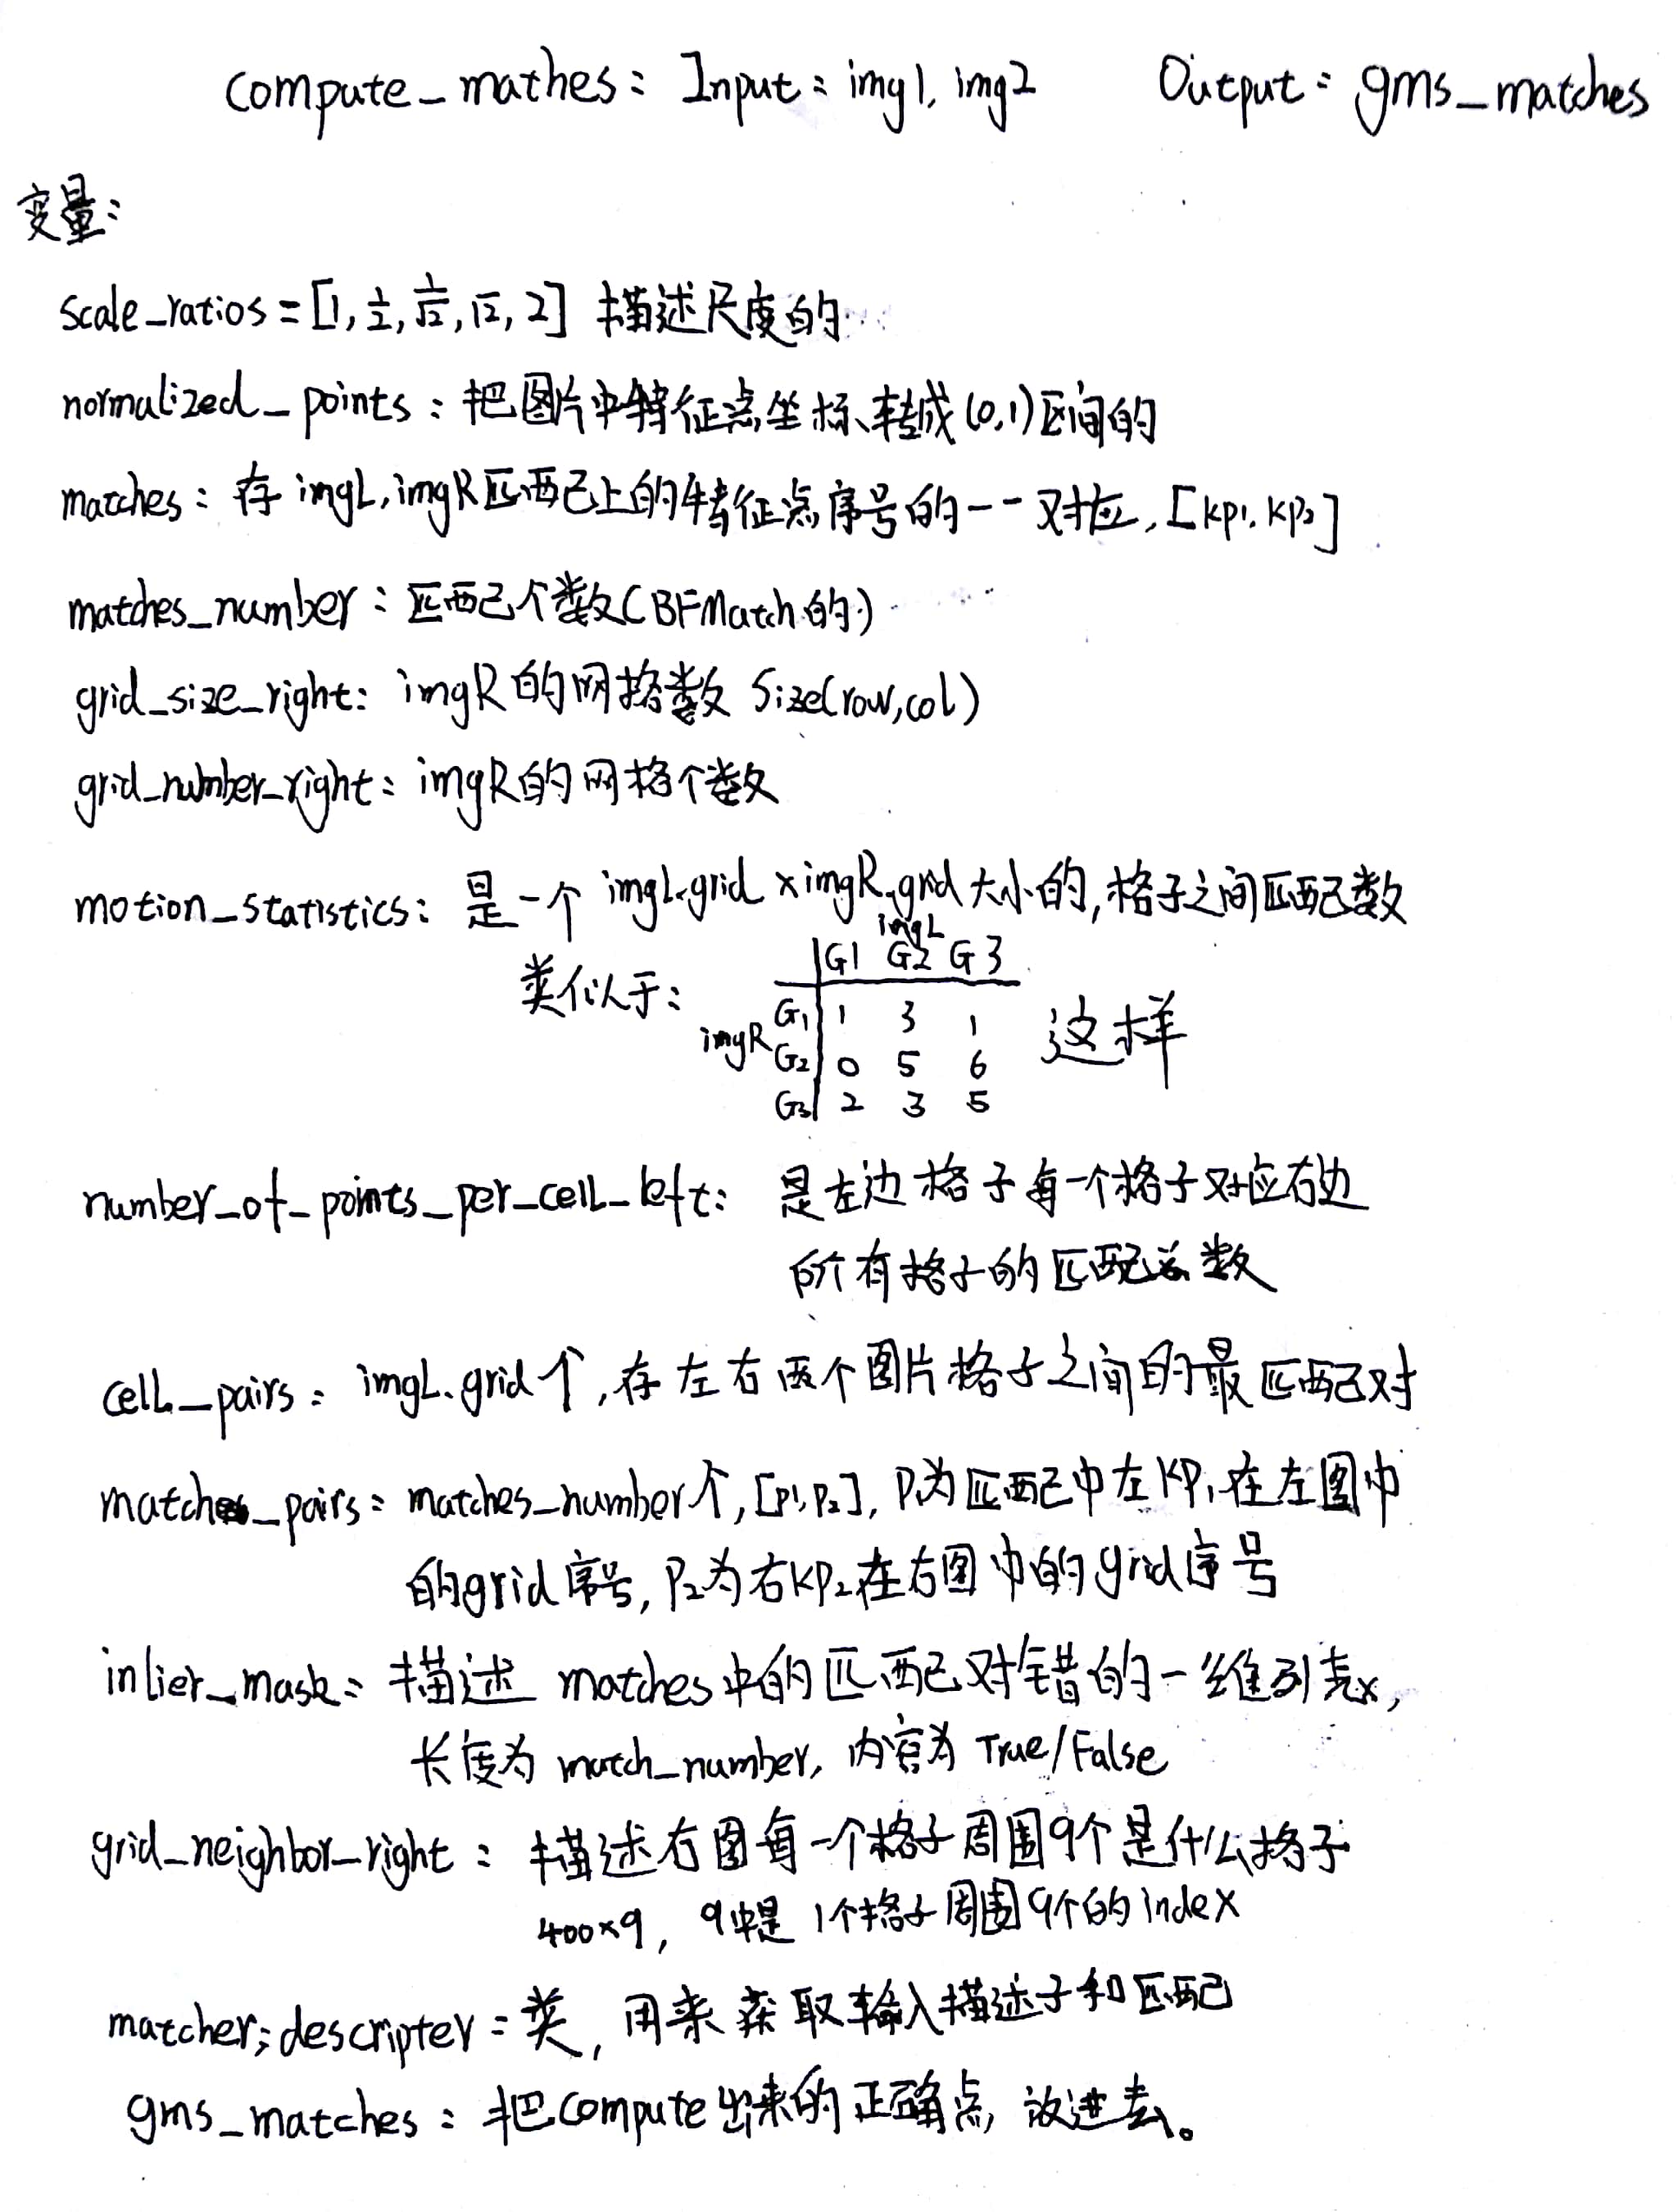 compute_mathes: Input: img1, img2 Output: gms_matches
变量:
scale_ratios = [1, 1/2, 1/√2, √2, 2] 描述尺度的
normalized_points: 把图片中特征点坐标转成(0,1)区间的
matches: 存imgL,imgR匹配上的特征点序号的一一对应, [kp1, kp2]
matches_number: 匹配个数(BFMatch的)
grid_size_right: imgR的网格数 Size(row,col)
grid_number_right: imgR的网格个数
motion_statistics: 是一个 imgL.grid × imgR.grid大小的,格子之间匹配数
imgL
类似于: G1 G2 G3
G1 1 3 1
imgR 这样
G2 0 5 6
G3 2 3 5
number_of_points_per_cell_left: 是左边格子每一个格子对应右边
所有格子的匹配总数
cell_pairs: imgL.grid个,存左右两个图片格子之间的最匹配对
match_pairs: matches_number个, [p1,p2], P1为匹配中左KP1在左图中
的grid序号, P2为右KP2在右图中的grid序号
inlier_mask: 描述 matches中的匹配对错的一维列表,
长度为 match_number, 内容为 True/False
grid_neighbor_right: 描述右图每一个格子周围9个是什么格子
400×9, 9中是1个格子周围9个的index
matcher; descripter: 类, 用来获取输入描述子和匹配
gms_matches: 把compute出来的正确点, 放进去。